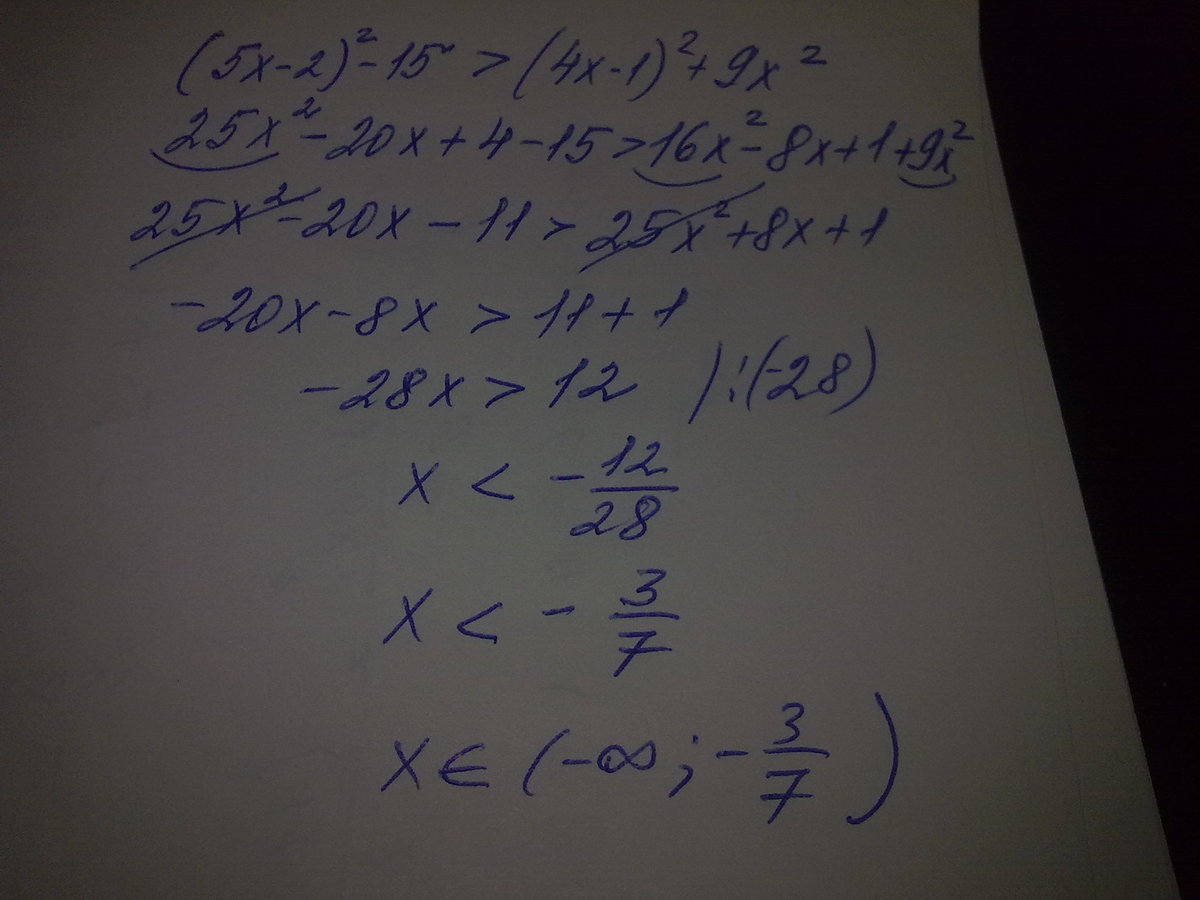 (5x-2)²-15 > (4x-1)²+9x²
25x²-20x+4-15>16x²-8x+1+9x²
25x²-20x-11>25x²+8x+1
-20x-8x > 11+1
-28x > 12 |:(-28)
x < -12/28
x < -3/7
x∈(-∞;-3/7)